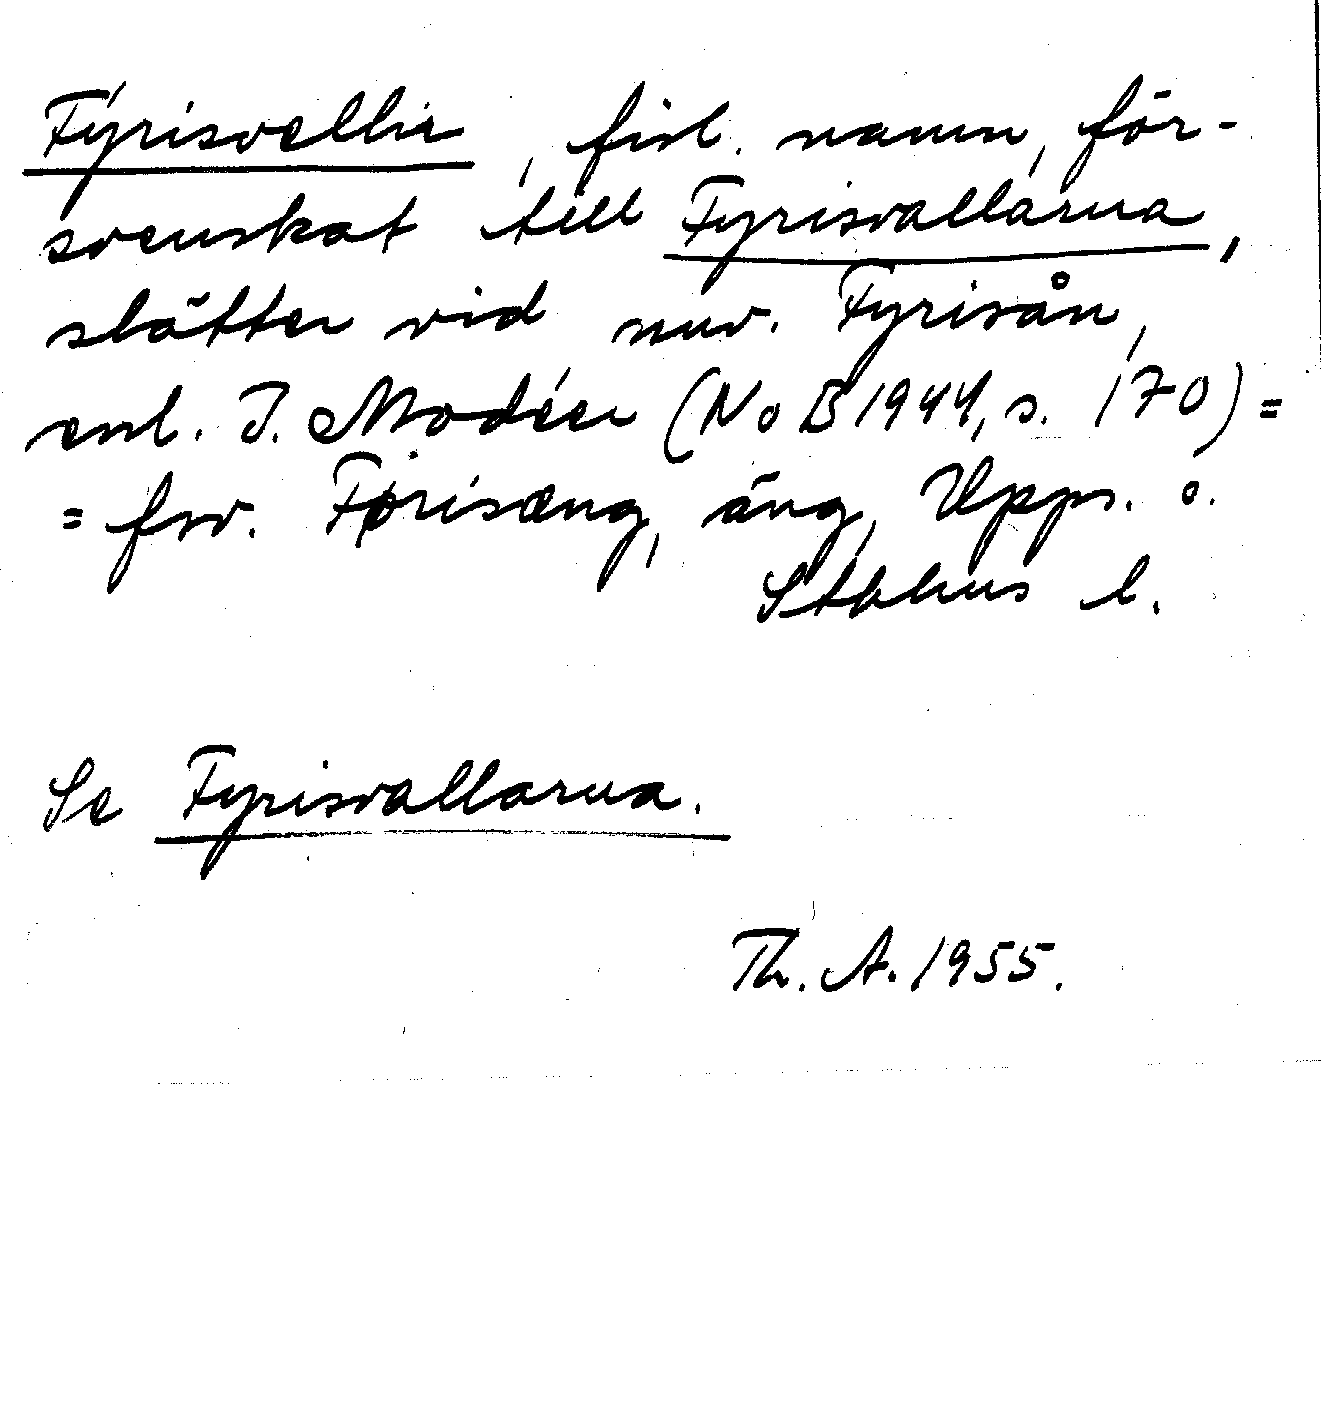 Fýrisvellir, fisl. namn, för-
svenskat till Fyrisvallarna,
slätter vid nuv. Fyrisån,
enl. I. Modéer (NoB 1944, s. 170) =
= fsv. Førisæng, äng, Upps. o.
Sthlms l.
Se Fyrisvallarna.
Th. A. 1955.